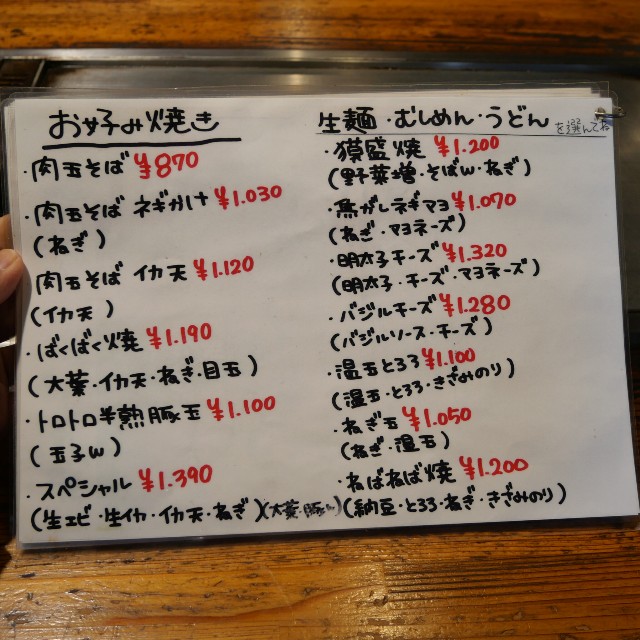 お好み焼き
・肉玉そば ¥870
・肉玉そば ネギかけ ¥1.030
(ねぎ)
肉玉そば イカ天 ¥1.120
(イカ天)
・ばくばく焼 ¥1.190
(大葉・イカ天・ねぎ・目玉)
・トロトロ半熟豚玉 ¥1.100
(玉子W)
・スペシャル ¥1.390
(生エビ・生イカ・イカ天・ねぎ)(大葉・豚)
生麺・むしめん・うどん を選んでね
・獏盛焼 ¥1.200
(野菜増・そばW・ねぎ)
・焦がしネギマヨ ¥1.070
(ねぎ・マヨネーズ)
・明太子チーズ ¥1.320
(明太子・チーズ・マヨネーズ)
・バジルチーズ ¥1.280
(バジルソース・チーズ)
・温玉とろろ ¥1.100
(温玉・とろろ・きざみのり)
・ねぎ玉 ¥1.050
(ねぎ・温玉)
・ねばねば焼 ¥1.200
(納豆・とろろ・ねぎ・きざみのり)